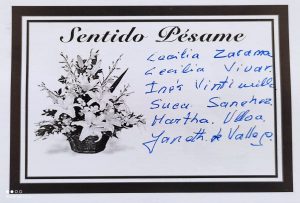 Sentido Pésame
Cecilia Zarama
Cecilia Vivar
Inés Vintimilla
Suca Sanchez
Martha. Ulloa,
Janeth de Vallejo.